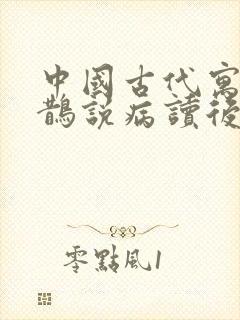 中國古代寓
鵲説病讀後
零點風1